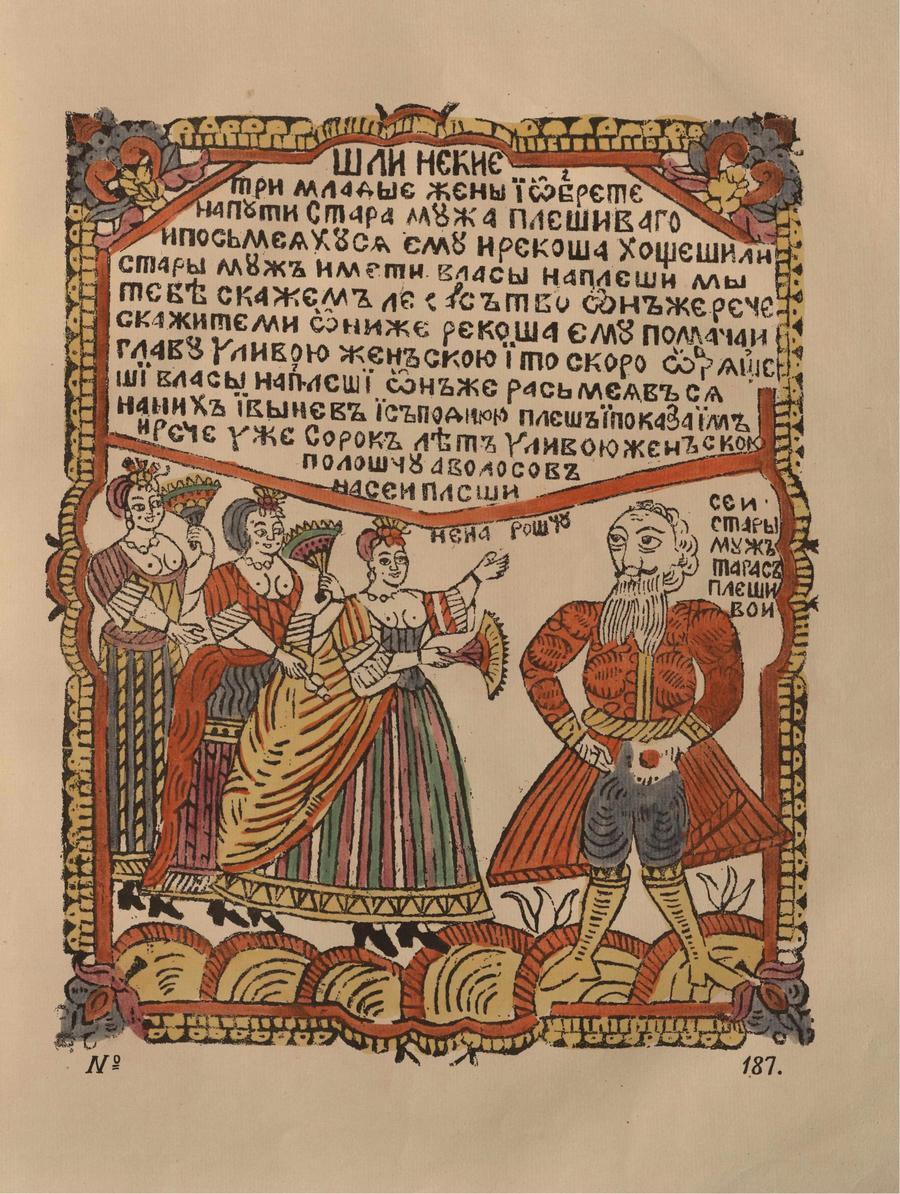 шли некие
три младые жены їѡ҃брете
напути стара мꙋжа плешиваго
ипосьмеяхꙋся емꙋ ирекоша хощешили
стары мꙋжъ имети власы наплеши мы
тебѣ скажемъ ѡнъжерече
скажитеми ѡниже рекоша емꙋ помачаи
главꙋ ꙋливою женъскою їто скоро
шї власы наплешї ѡнъже расьмеявъся
нанихъ ївыневъ їсъподнюю плешъїпоказаїмъ
ирече ꙋже сорокъ лѣтъ ꙋливоюженъскою
полошчꙋ аволосовъ
насеи плеши
нена рошчꙋ
сеи
стары
мꙋжъ
тарасъ
плеши
вои
№ 187.